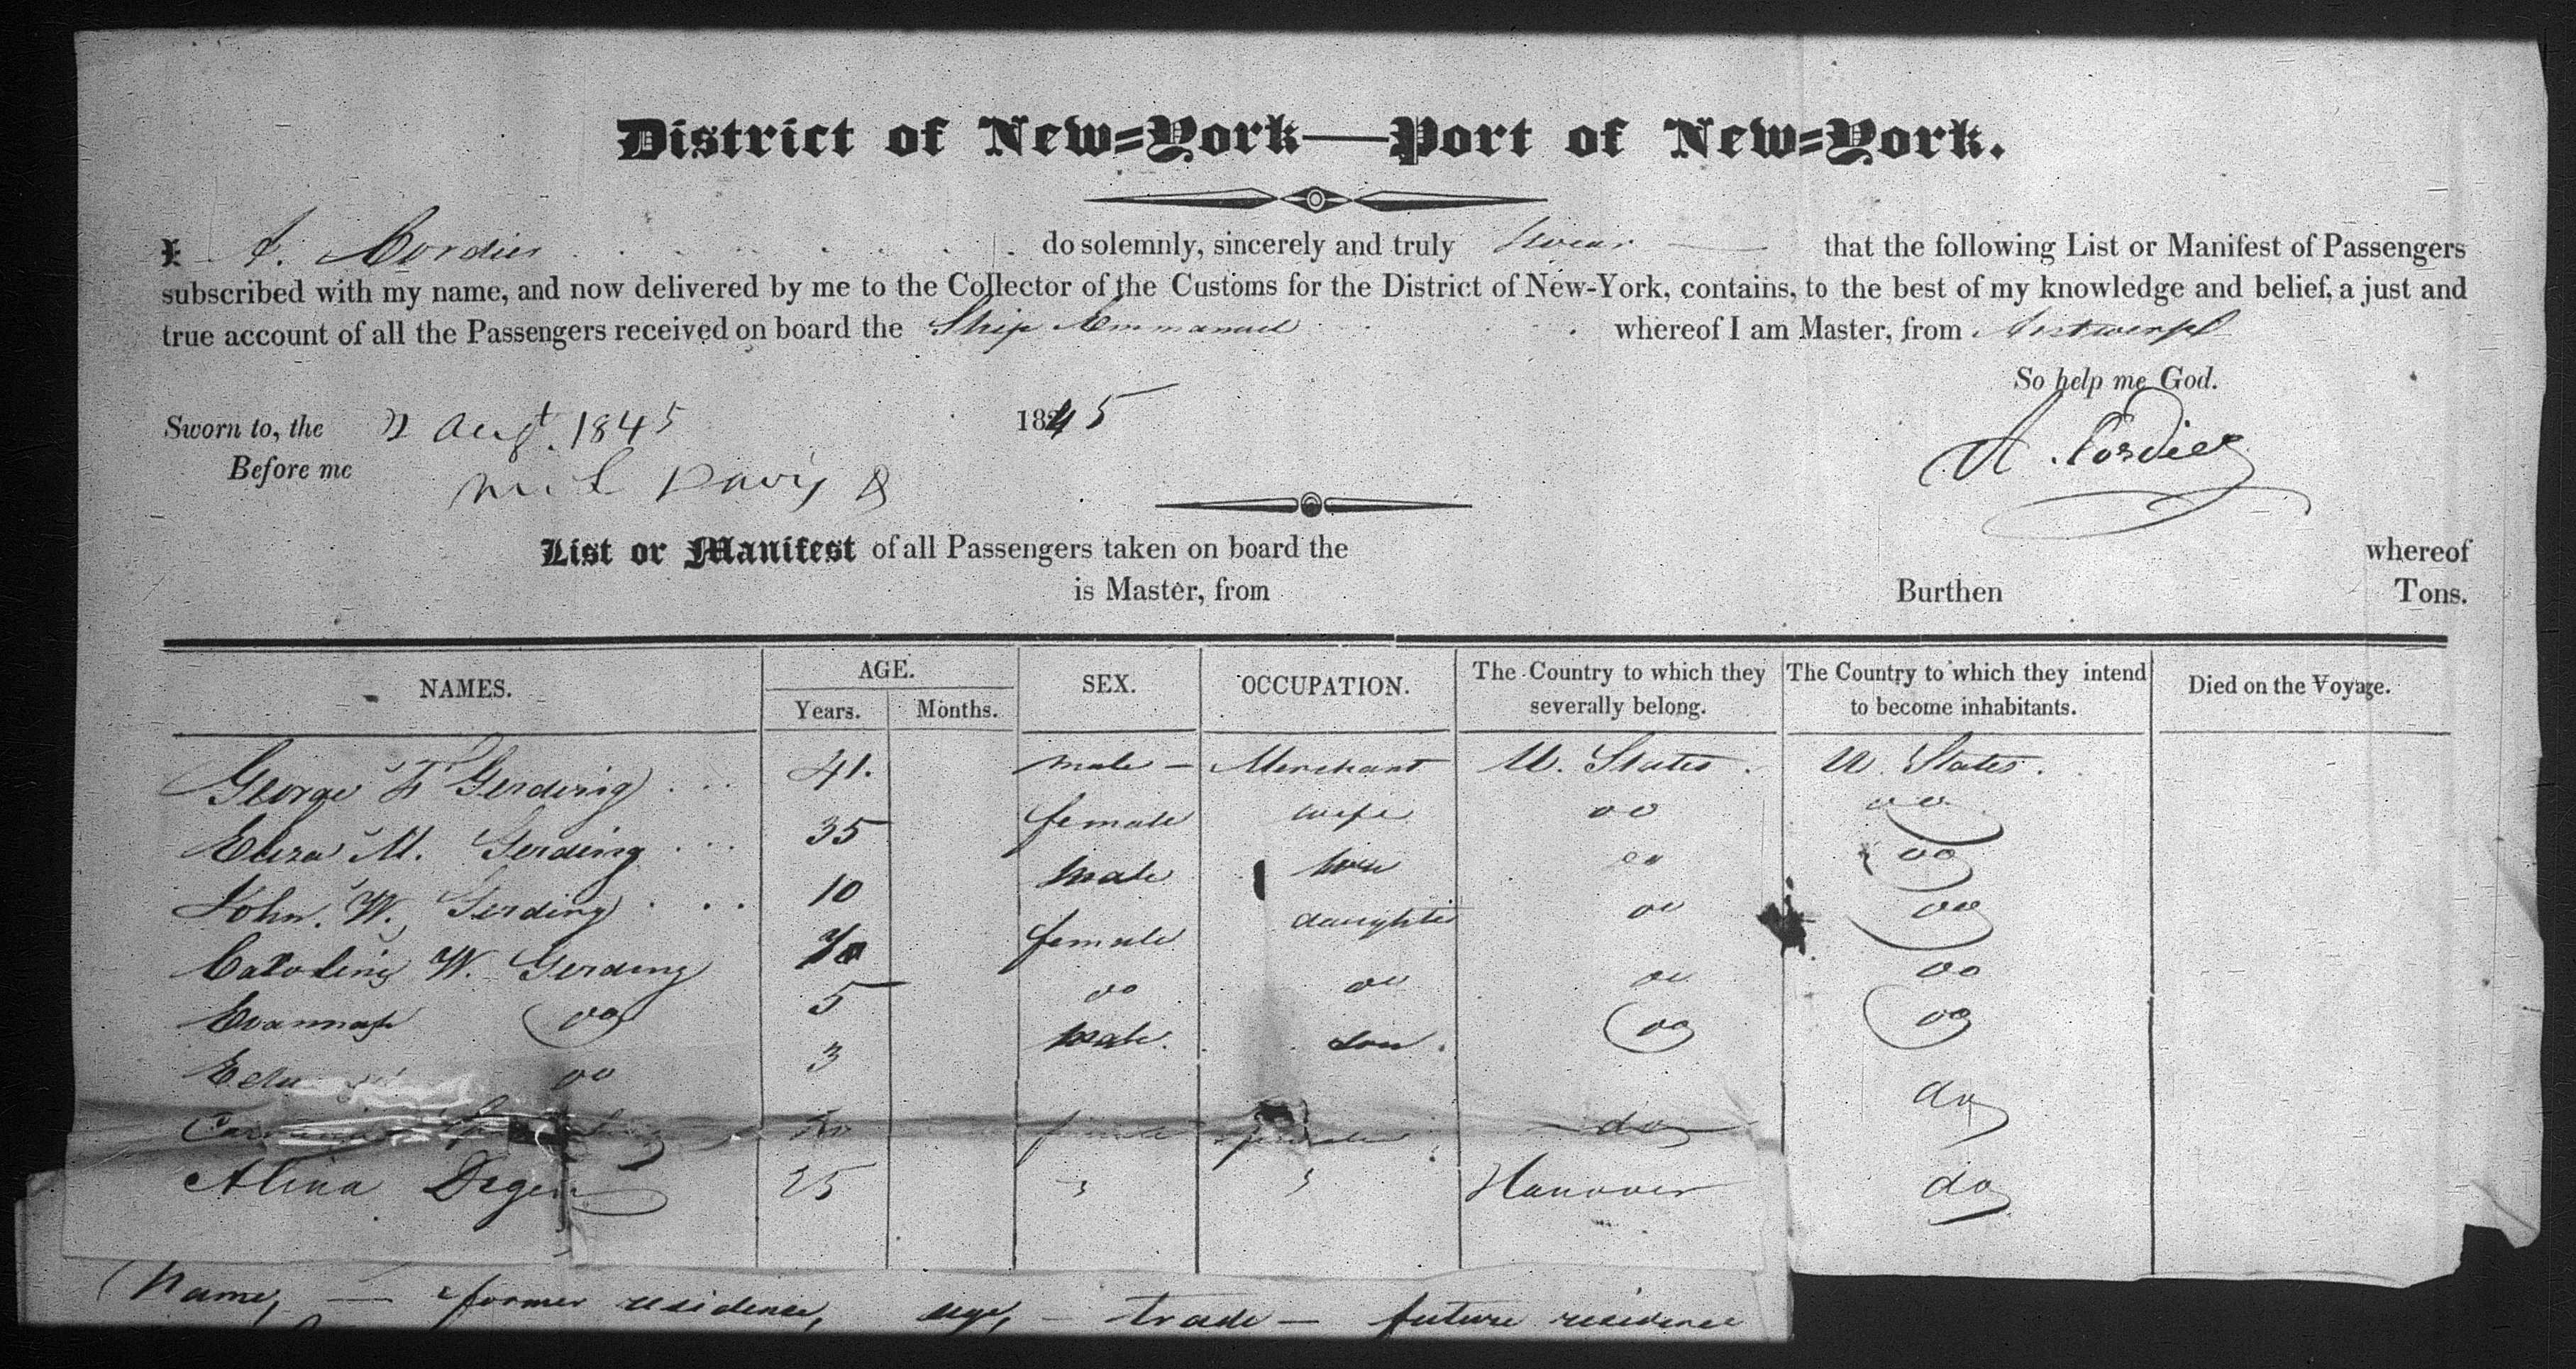 District of New=York—Port of New=York.
I A. Cordier do solemnly, sincerely and truly swear that the following List or Manifest of Passengers
subscribed with my name, and now delivered by me to the Collector of the Customs for the District of New-York, contains, to the best of my knowledge and belief, a just and
true account of all the Passengers received on board the Ship Emmanuel whereof I am Master, from Antwerp
So help me God.
Sworn to, the 2 Augt. 1845 1845
A. Cordier
Before me Davis
List or Manifest of all Passengers taken on board the whereof
is Master, from Burthen Tons.
NAMES. AGE. SEX. OCCUPATION. The Country to which they severally belong. The Country to which they intend to become inhabitants. Died on the Voyage.
Years. Months.
George F Gerding 41. male – Merchant U. States. U. States.
Eliza M. Gerding 35 female wife do do
John. W. Gerding 10 male son do do
Caroline W. Gerding female daughter do do
do 5 do do do do
do 3 male. son. do do
female do do
Alina Degen 25 " " Hanover do
(Name, — former residence, age, – trade – future residence